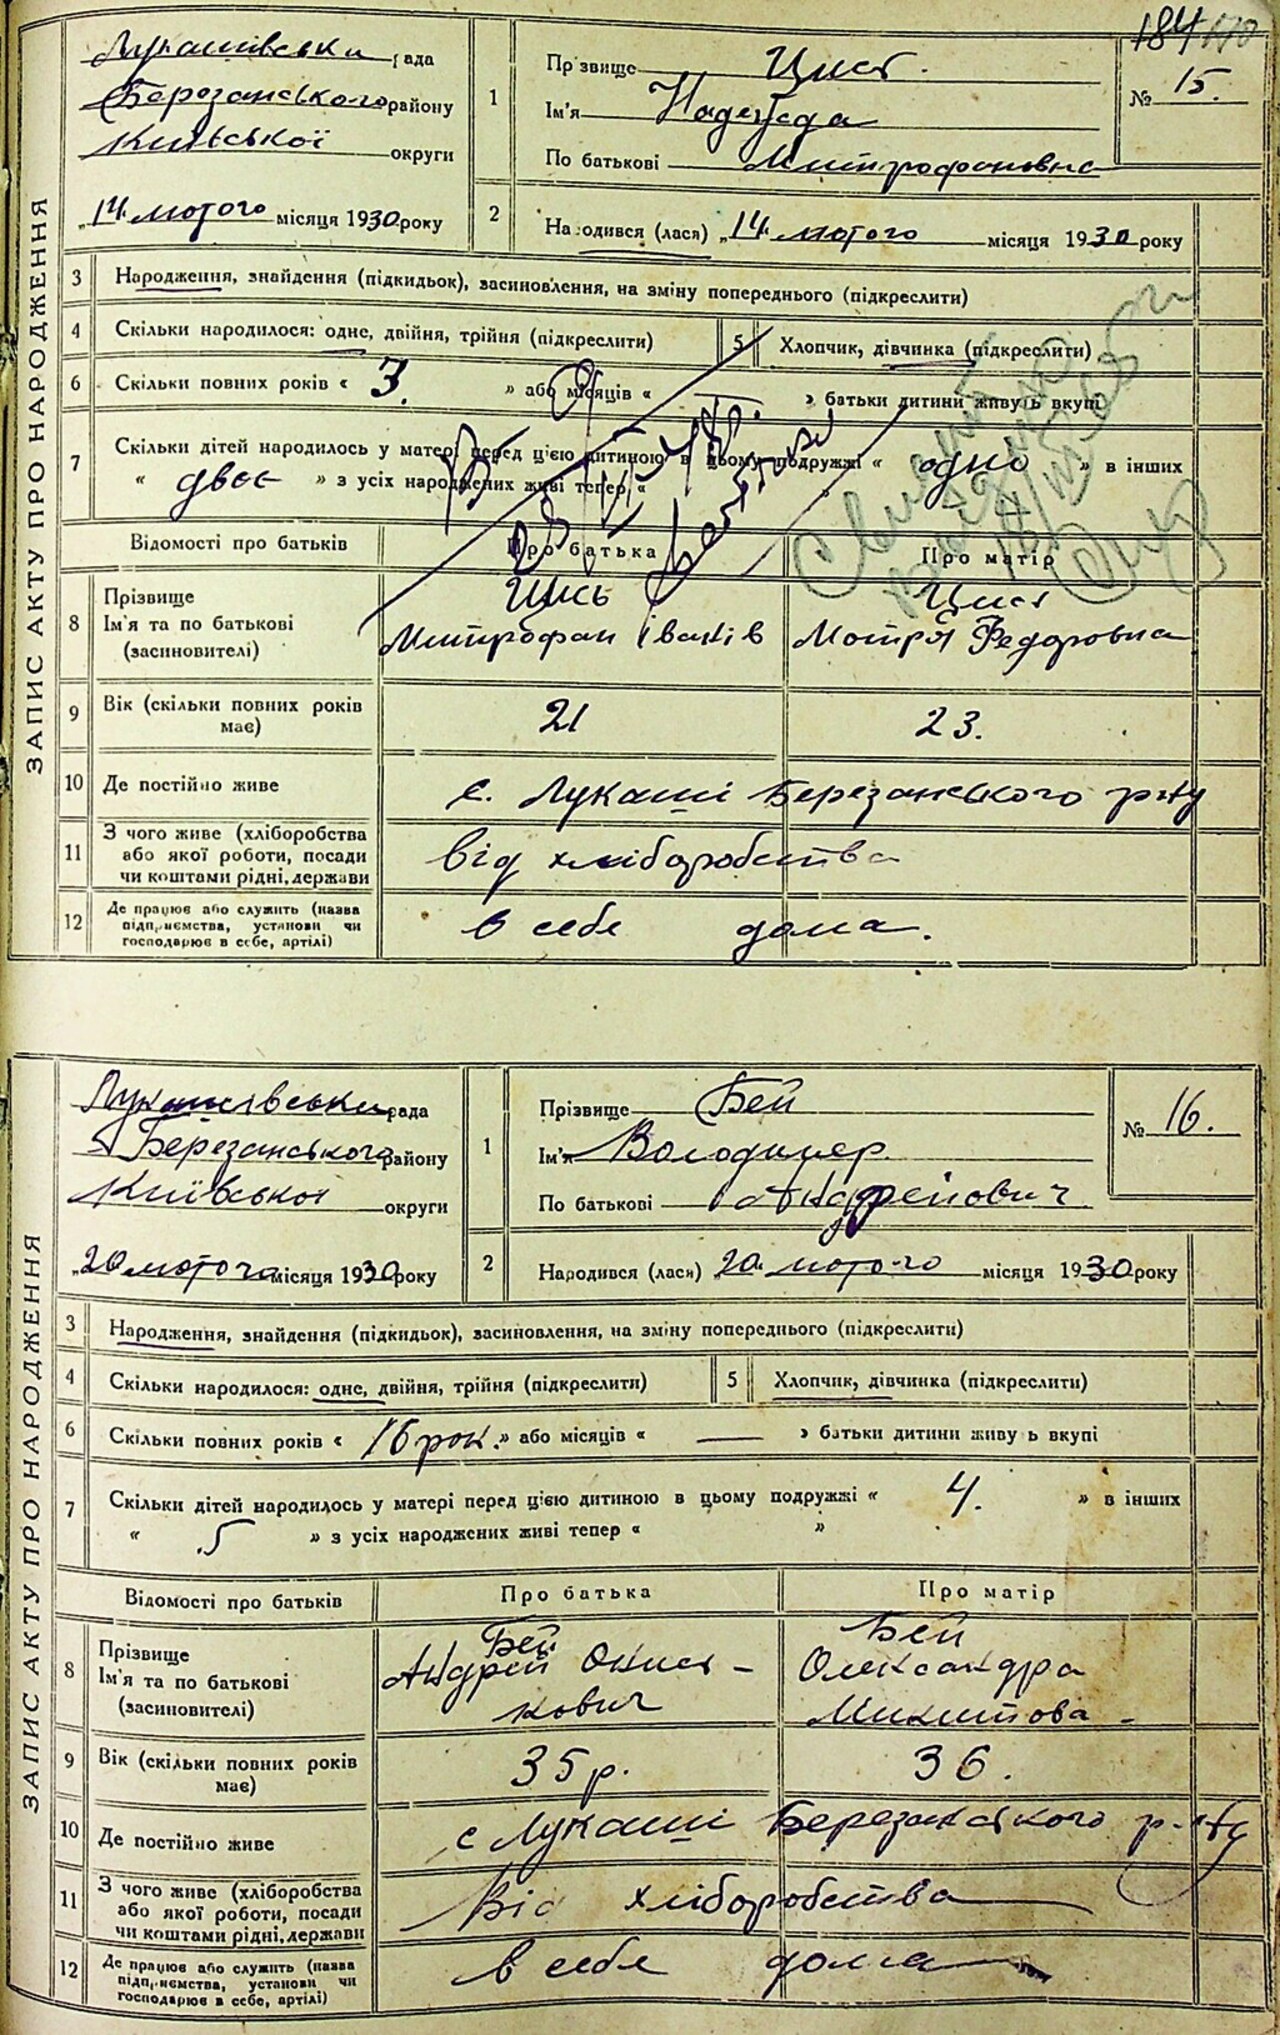 184
Лукашівська рада
Березанського району
Київської округи
„14. лютого місяця 1930 року
1
Прізвище Цись.
Ім'я Надежда
По батькові Митрофановна
№ 15.
2
Народився (лася) „14. лютого місяця 1930 року
ЗАПИС АКТУ ПРО НАРОДЖЕННЯ
3 Народження, знайдення (підкидьок), засиновлення, на зміну попереднього (підкреслити)
4 Скільки народилося: одне, двійня, трійня (підкреслити)
5 Хлопчик, дівчинка (підкреслити)
6 Скільки повних років « 3. » або місяців « — » батьки дитини живуть вкупі
7 Скільки дітей народилось у матері перед цією дитиною в цьому подружжі « одно » в інших
« двоє » з усіх народжених живі тепер « »
Відомості про батьків
Про батька
Про матір
8 Прізвище
Ім'я та по батькові
(засиновителі)
Цись
Митрофан Іванів
Цись
Мотря Федоровна
9 Вік (скільки повних років
має)
21
23.
10 Де постійно живе
с. Лукаші Березанського р-ну
11 З чого живе (хліборобства
або якої роботи, посади
чи коштами рідні, держави
від хліборобства
12 Де працює або служить (назва
підприємства, установи чи
господарює в себе, артілі)
в себе дома.
Лукашівська рада
Березанського району
Київської округи
„20 лютого місяця 1930 року
1
Прізвище Бей
Ім'я Володимер
По батькові Андрейович
№ 16.
2
Народився (лася) „20. лютого місяця 1930 року
ЗАПИС АКТУ ПРО НАРОДЖЕННЯ
3 Народження, знайдення (підкидьок), засиновлення, на зміну попереднього (підкреслити)
4 Скільки народилося: одне, двійня, трійня (підкреслити)
5 Хлопчик, дівчинка (підкреслити)
6 Скільки повних років « 16 рок. » або місяців « — » батьки дитини живу ь вкупі
7 Скільки дітей народилось у матері перед цією дитиною в цьому подружжі « 4. » в інших
« 5 » з усіх народжених живі тепер « »
Відомості про батьків
Про батька
Про матір
8 Прізвище
Ім'я та по батькові
(засиновителі)
Бей
Андрей Онись-
кович
Бей
Олександра
Микитова
9 Вік (скільки повних років
має)
35 р.
36.
10 Де постійно живе
с Лукаші Березанського р-ну
11 З чого живе (хліборобства
або якої роботи, посади
чи коштами рідні, держави
Від хліборобства
12 Де працює або служить (назва
підприємства, установи чи
господарює в себе, артілі)
в себе дома